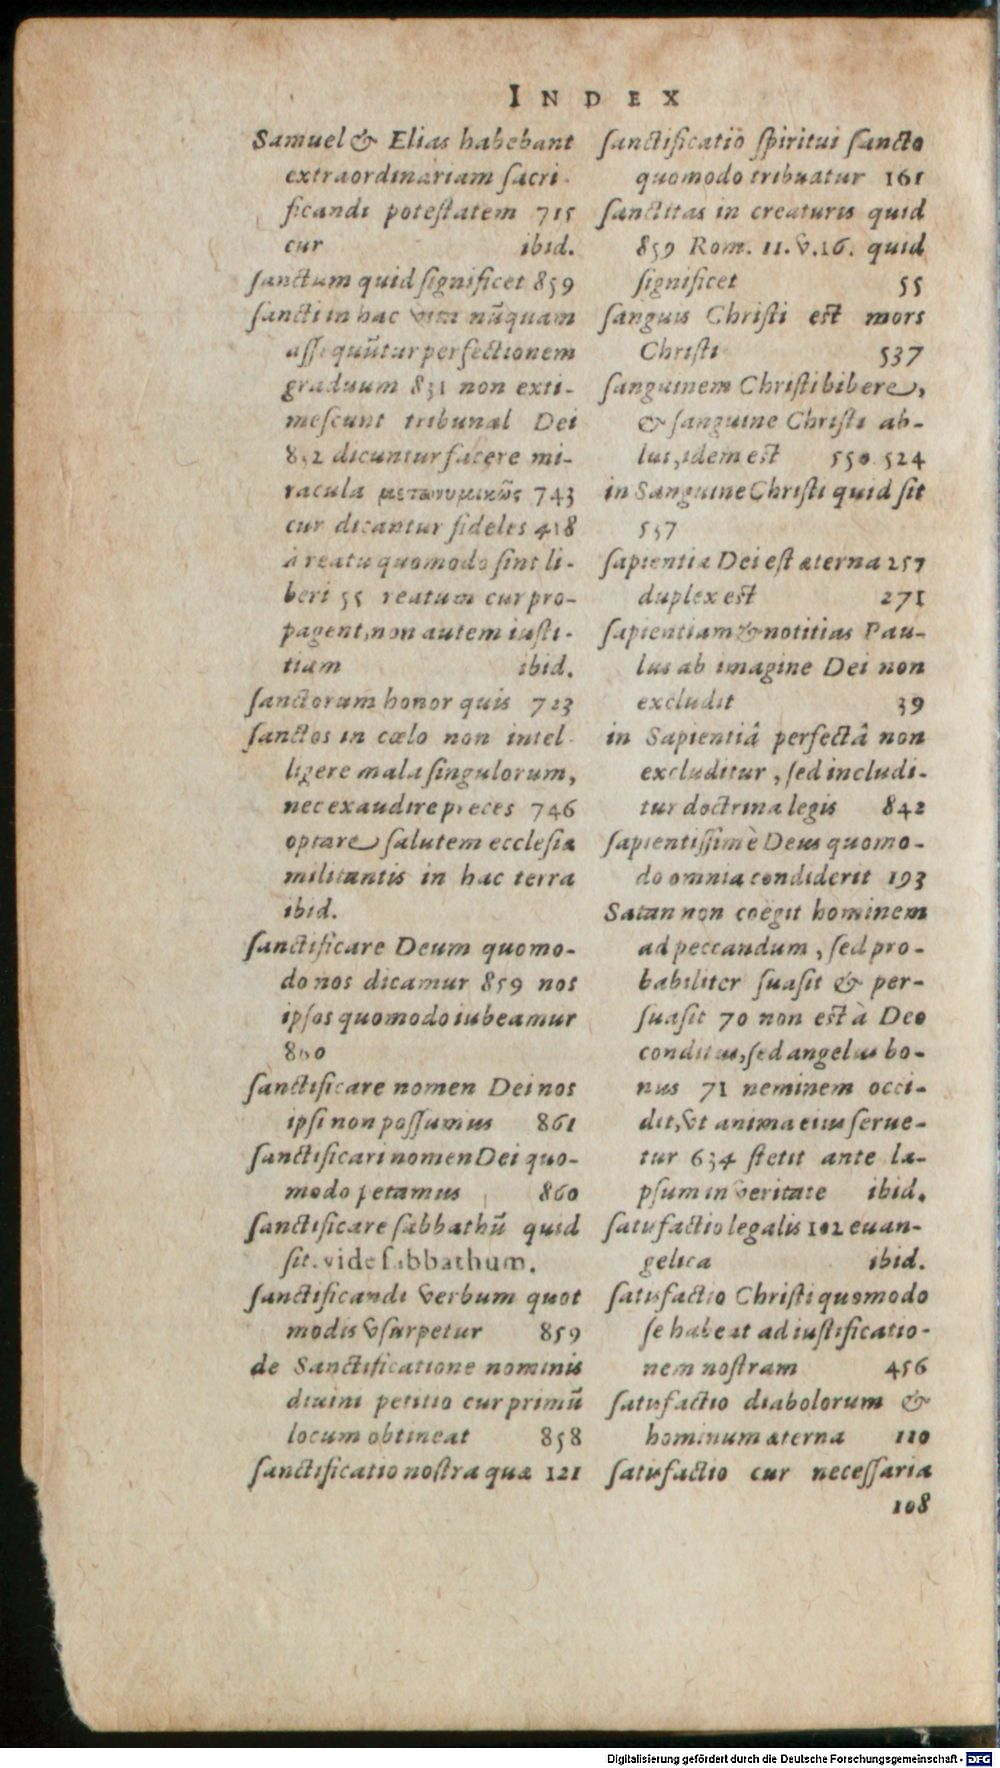 INDEX
Samuel & Elias habebant
extraordinariam sacri-
ficandi potestatem 715
cur ibid.
sanctum quid significet 859
sancti in hac vita nūquam
assequūtur perfectionem
graduum 831 non exti-
mescunt tribunal Dei
832 dicuntur facere mi-
racula μετωνυμικῶς 743
cur dicantur fideles 418
à reatu quomodo sint li-
beri 55 reatum cur pro-
pagent, non autem iusti-
tiam ibid.
sanctorum honor quis 723
sanctos in cœlo non intel-
ligere mala singulorum,
nec exaudire preces 746
optare salutem ecclesiæ
militantis in hac terra
ibid.
sanctificare Deum quomo-
do nos dicamur 859 nos
ipsos quomodo iubeamur
860
sanctificare nomen Dei nos
ipsi non possumus 861
sanctificari nomen Dei quo-
modo petamus 860
sanctificare sabbathū quid
sit. vide sabbathum.
sanctificandi verbum quot
modis vsurpetur 859
de Sanctificatione nominis
diuini petitio cur primū
locum obtineat 858
sanctificatio nostra quæ 121
sanctificatiō spiritui sancto
quomodo tribuatur 161
sanctitas in creaturis quid
859 Rom. 11. v. 16. quid
significet 55
sanguis Christi est mors
Christi 537
sanguinem Christi bibere,
& sanguine Christi ab-
lui, idem est 550 524
in Sanguine Christi quid sit
537
sapientia Dei est æterna 257
duplex est 271
sapientiam & notitias Pau-
lus ab imagine Dei non
excludit 39
in Sapientiâ perfectâ non
excluditur, sed includi-
tur doctrina legis 842
sapientissimè Deus quomo-
do omnia condiderit 193
Satan non coëgit hominem
ad peccandum, sed pro-
babiliter suasit & per-
suasit 70 non est à Deo
conditus, sed angelus bo-
nus 71 neminem occi-
dit, vt anima eius serue-
tur 634 stetit ante la-
psum in veritate ibid.
satisfactio legalis 102 euan-
gelica ibid.
satisfactio Christi quomodo
se habeat ad iustificatio-
nem nostram 456
satisfactio diabolorum &
hominum æterna 110
satisfactio cur necessaria
108
Digitalisierung gefördert durch die Deutsche Forschungsgemeinschaft - DFG